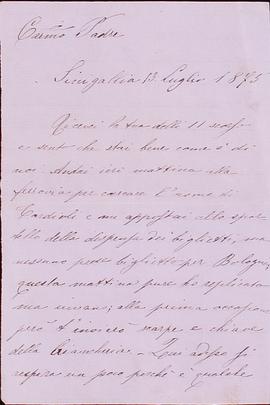 Carmo Padre
Sinigallia 13. Luglio 1875
Ricevei la tua delli 11 scorso
e sento che stai bene come è di
noi. Andai ieri mattina alla
ferrovia per cercare l'uomo di
Cardioli e mi appostai allo spor-
tello della dispensa dei biglietti, ma
nessuno prese biglietto per Bologna,
questa mattina pure ho replicato
ma invano; alla prima occasione
però t'invierò scarpe e chiave
della biancheria. Qui adesso si
respira un poco perché è qualche